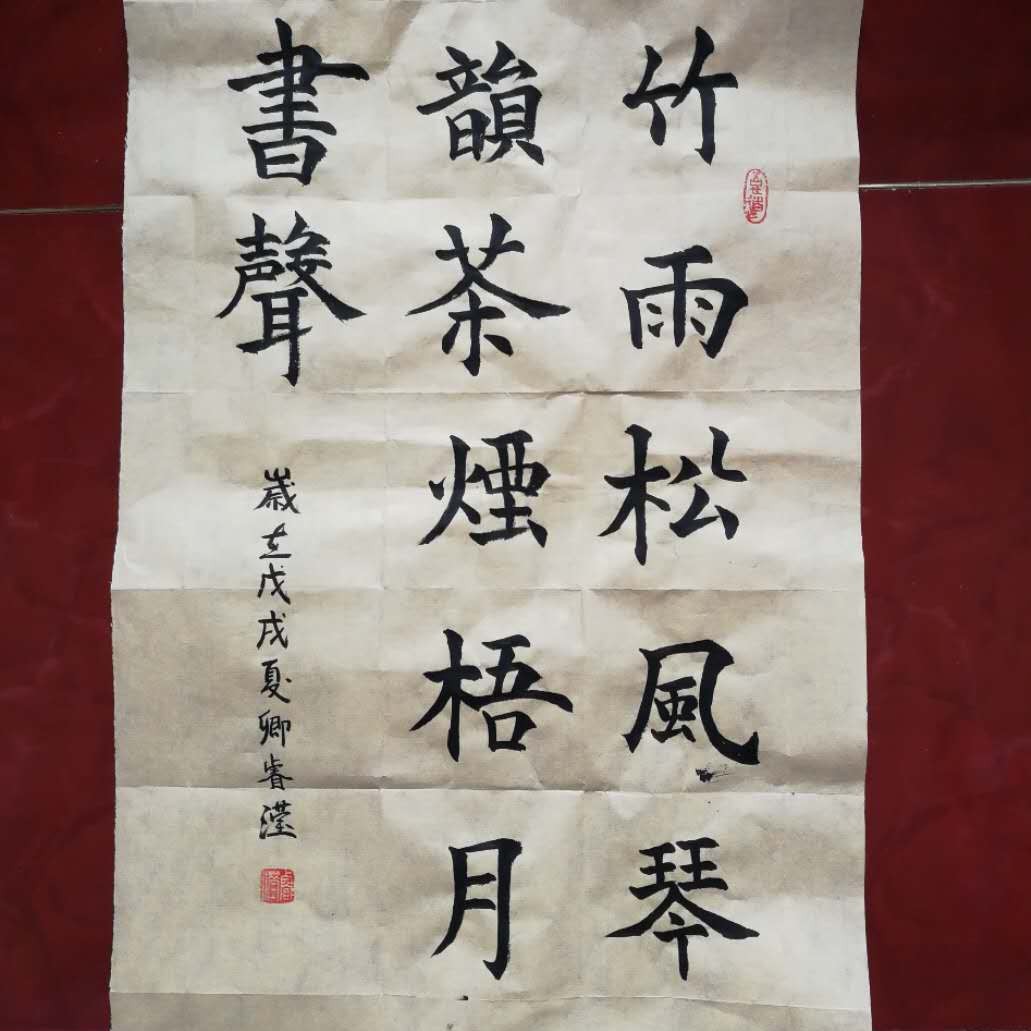 竹雨松風琴
韻茶煙梧月
書聲
歲在戊戌夏卿睿瀅